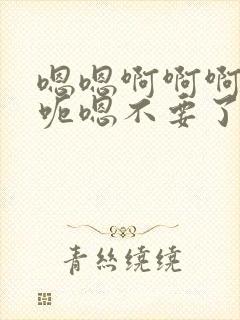 嗯嗯啊啊啊
呃嗯不要了
青丝绕绕